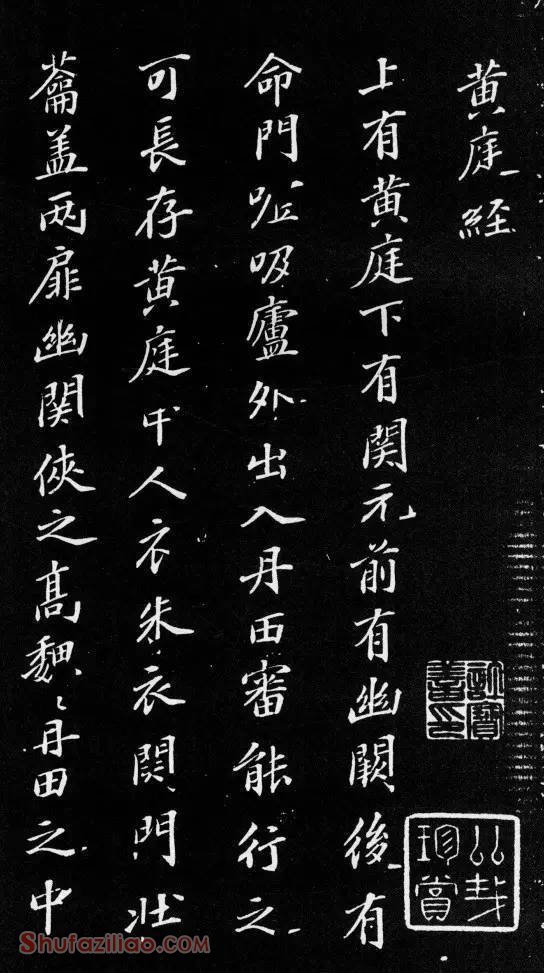 黄庭経
上有黄庭下有関元前有幽闕後有
命門嘘吸廬外出入丹田審能行之
可長存黄庭中人衣朱衣関門壮
蘥盖两扉幽関俠之髙魏〻丹田之中
珍賞
Shufaziliao.com